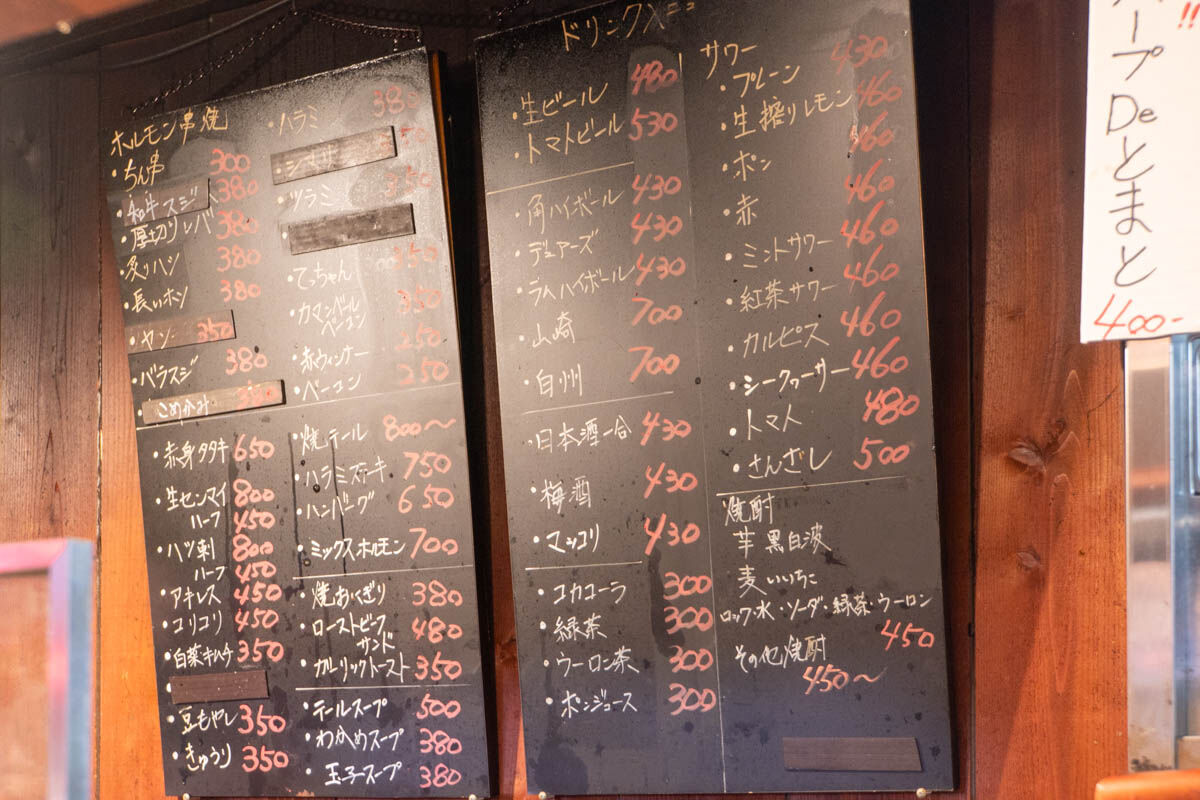 ホルモン串焼
・ちん串 300
・和牛スジ 380
・厚切りレバ 380
・炙りハツ 380
・長いホソ 380
・ヤン 350
・バラスジ 380
・こめかみ
・ハラミ 380
・シマチョウ
・ツラミ 350
・てっちゃん 350
・カマンベール
ベーコン 350
・赤ウィンナー 250
・ベーコン 250
・赤身タタキ 650
・生センマイ 800
ハーフ 450
・ハツ刺 800
ハーフ 450
・アキレス 450
・コリコリ 450
・白菜キムチ 350
・豆もやし 350
・きゅうり 350
・焼テール 800〜
・ハラミステーキ 750
・ハンバーグ 650
・ミックスホルモン 700
・焼おにぎり 380
・ローストビーフ
サンド 480
・ガーリックトースト 350
・テールスープ 500
・わかめスープ 380
・玉子スープ 380
ドリンクメニュー
・生ビール 480
・トマトビール 530
・角ハイボール 430
・デュアーズ 430
・ラムハイボール 430
・山崎 700
・白州 700
・日本酒一合 430
・梅酒 430
・マッコリ 430
・コカコーラ 300
・緑茶 300
・ウーロン茶 300
・ポンジュース 300
サワー
・プレーン 430
・生搾りレモン 460
・ポン 460
・赤 460
・ミントサワー 460
・紅茶サワー 460
・カルピス 460
・シークヮーサー 460
・トマト 480
・さんざし 500
焼酎
芋 黒白波
麦 いいちこ
ロック・水・ソーダ・緑茶・ウーロン
450
その他焼酎
450〜
ープDeとまと
!!
400-